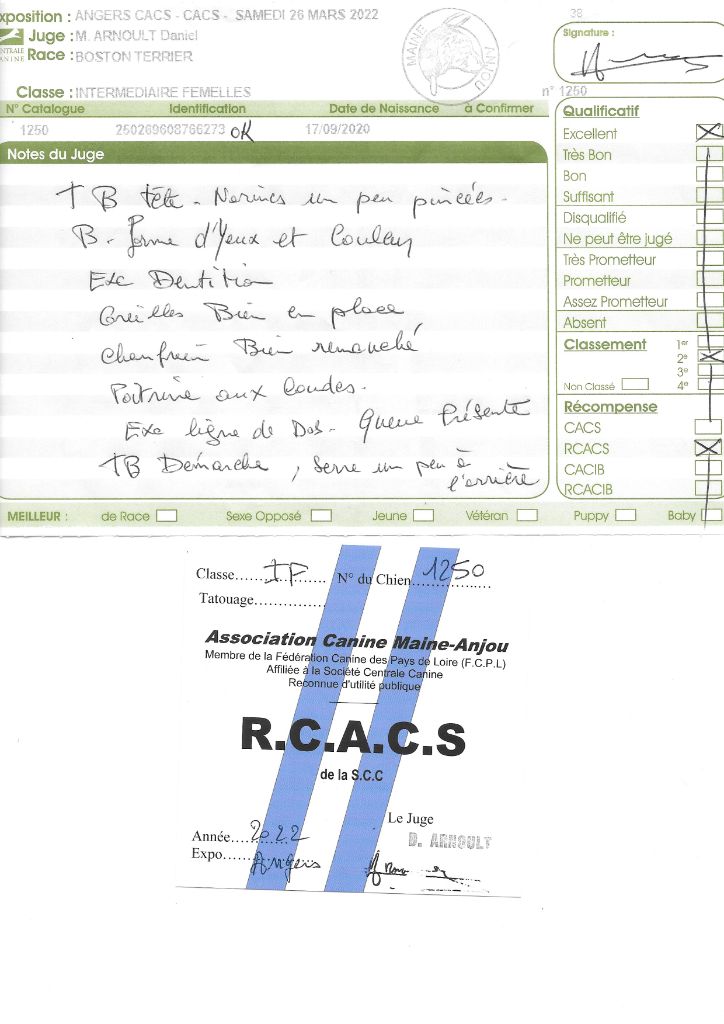 xposition : ANGERS CACS - CACS - SAMEDI 26 MARS 2022
38
Juge : M. ARNOULT Daniel
Race : BOSTON TERRIER
Classe : INTERMEDIAIRE FEMELLES
n° 1250
MAINE ANJOU
Signature :
N° Catalogue Identification Date de Naissance à Confirmer
1250 250269608766273 OK 17/09/2020
Notes du Juge
TB tête - Narines un peu pincées -
B - forme d'Yeux et Couleur
Exc Dentition
Oreilles Bien en place
Chanfrein Bien remanché
Poitrine aux Coudes -
Exc ligne de Dos - Queue Présente
TB Démarche, Serre un peu à
l'arrière
Qualificatif
Excellent
Très Bon
Bon
Suffisant
Disqualifié
Ne peut être jugé
Très Prometteur
Prometteur
Assez Prometteur
Absent
Classement 1er
2e
3e
Non Classé 4e
Récompense
CACS
RCACS
CACIB
RCACIB
MEILLEUR : de Race Sexe Opposé Jeune Vétéran Puppy Baby
Classe......IF...... N° du Chien...1250......
Tatouage...............
Association Canine Maine-Anjou
Membre de la Fédération Canine des Pays de Loire (F.C.P.L)
Affiliée à la Société Centrale Canine
Reconnue d'utilité publique
R.C.A.C.S
de la S.C.C
Le Juge
Année...2022
D. ARNOULT
Expo......Angers